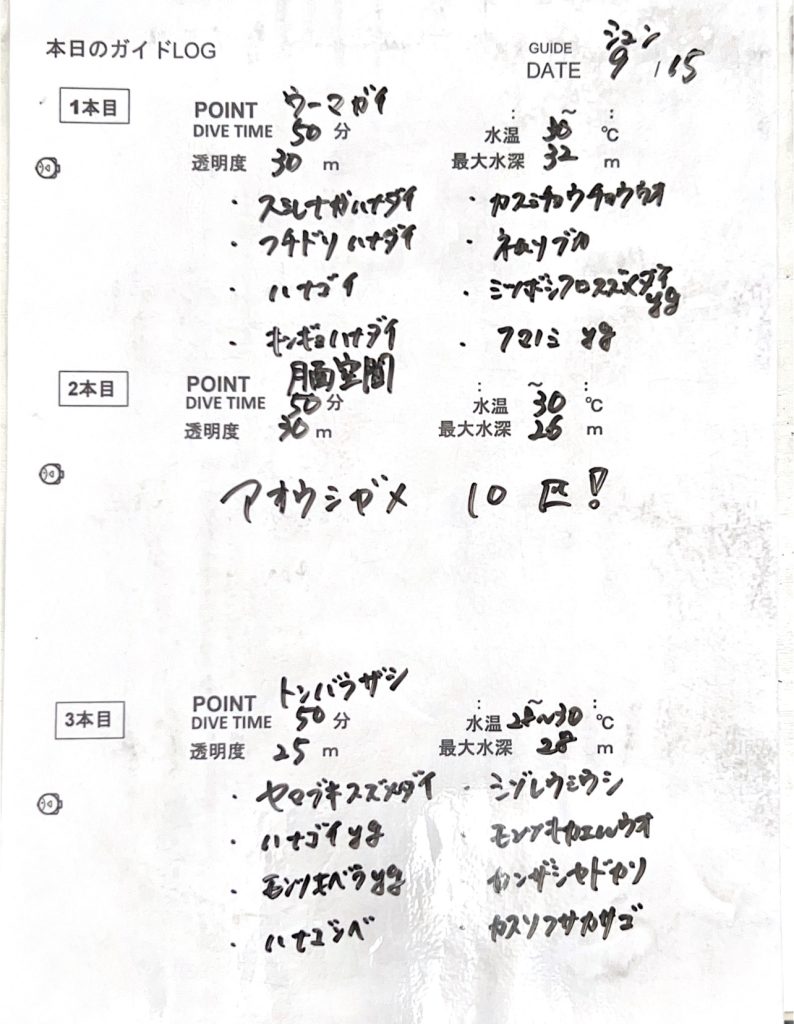 本日のガイドLOG
GUIDE ジュン
DATE 9 / 15
1本目
POINT ウーマガイ
: ~ :
DIVE TIME 50 分 水温 30 ℃
透明度 30 m 最大水深 32 m
・スミレナガハナダイ ・カスミチョウチョウウオ
・フチドリハナダイ ・ネムリブカ
・ハナゴイ ・ミツボシクロスズメダイ yg
・キンギョハナダイ ・クマノミ yg
2本目
POINT 月面空間
: ~ :
DIVE TIME 50 分 水温 30 ℃
透明度 30 m 最大水深 26 m
アオウミガメ 10匹!
3本目
POINT トンバラザシ
: ~ :
DIVE TIME 50 分 水温 28~30 ℃
透明度 25 m 最大水深 28 m
・ヤマブキスズメダイ ・ミゾレウミウシ
・ハナゴイ yg ・モンツキカエルウオ
・モンツキベラ yg ・カンザシヤドカリ
・ハナゴンベ ・カスリフサカサゴ